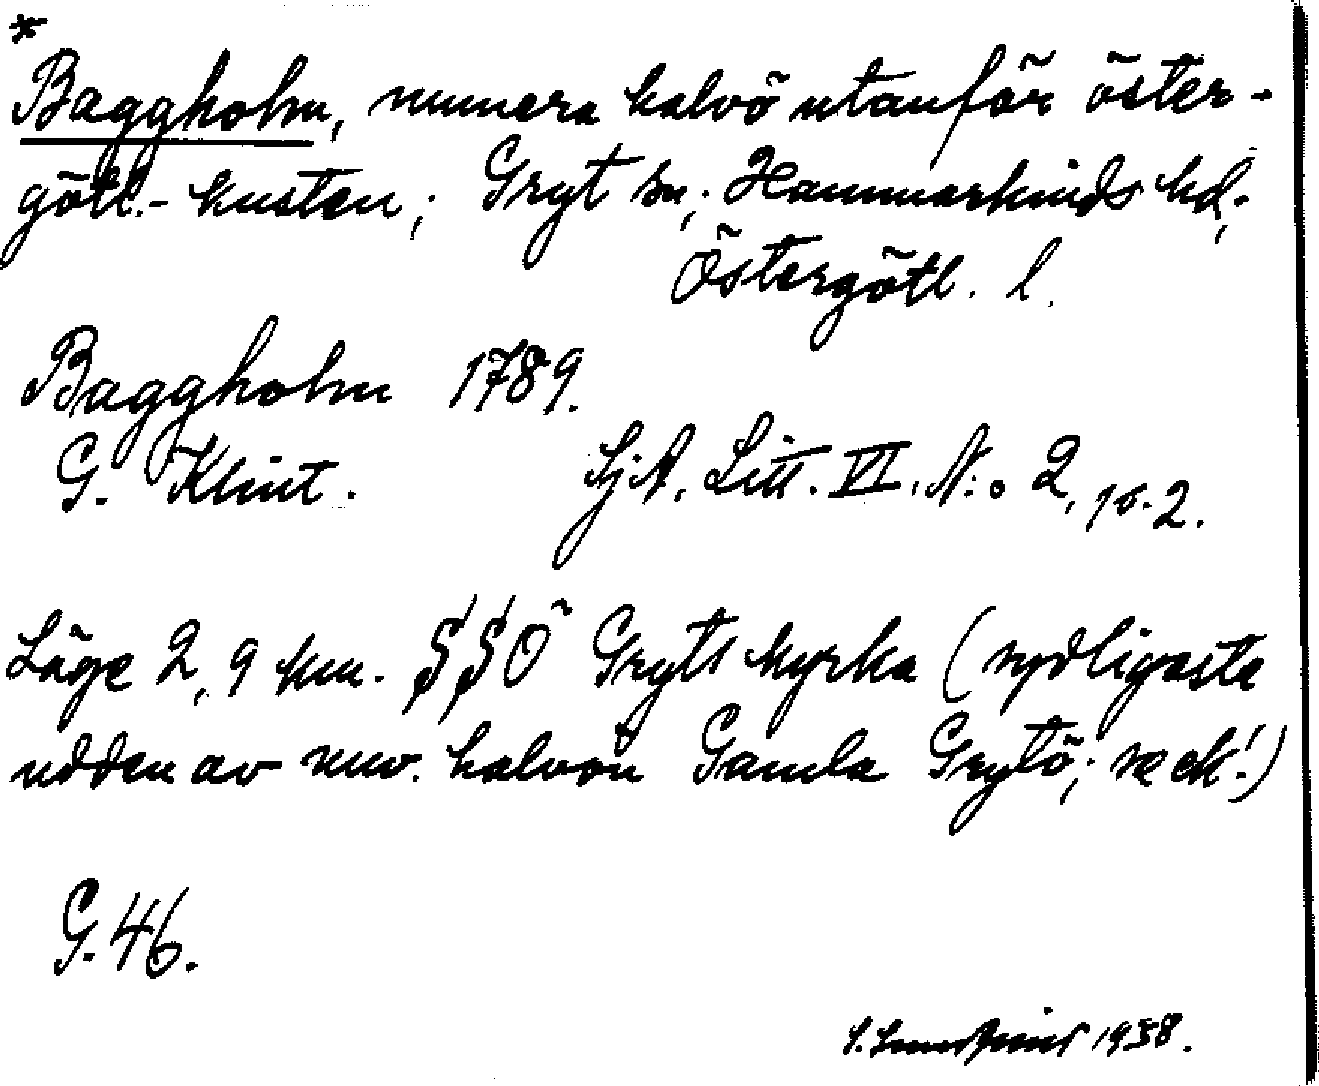 *
Baggholm, numera halvö utanför öster-
götl.-kusten; Gryt sn; Hammarkinds hd;
Östergötl. l.
Baggholm 1789.
G. Klint. SjA. Litt. VI. N:o 2, 
Läge 2,9 km. SSÖ Gryts kyrka (sydligaste
udden av nuv. halvön Gamla Grytö; se ek.!)
G. 46.
1938.